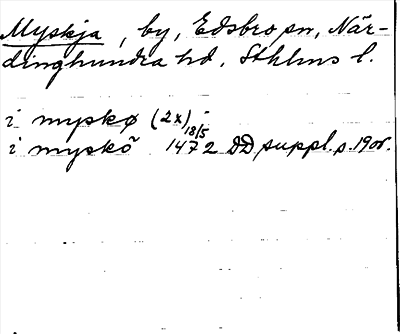 Myskja, by, Edsbro sn, När-
dinghundra hd, Sthlms l.
i myskø (2x)
i myskõ 18/5 1472 DD suppl. s. 190r.